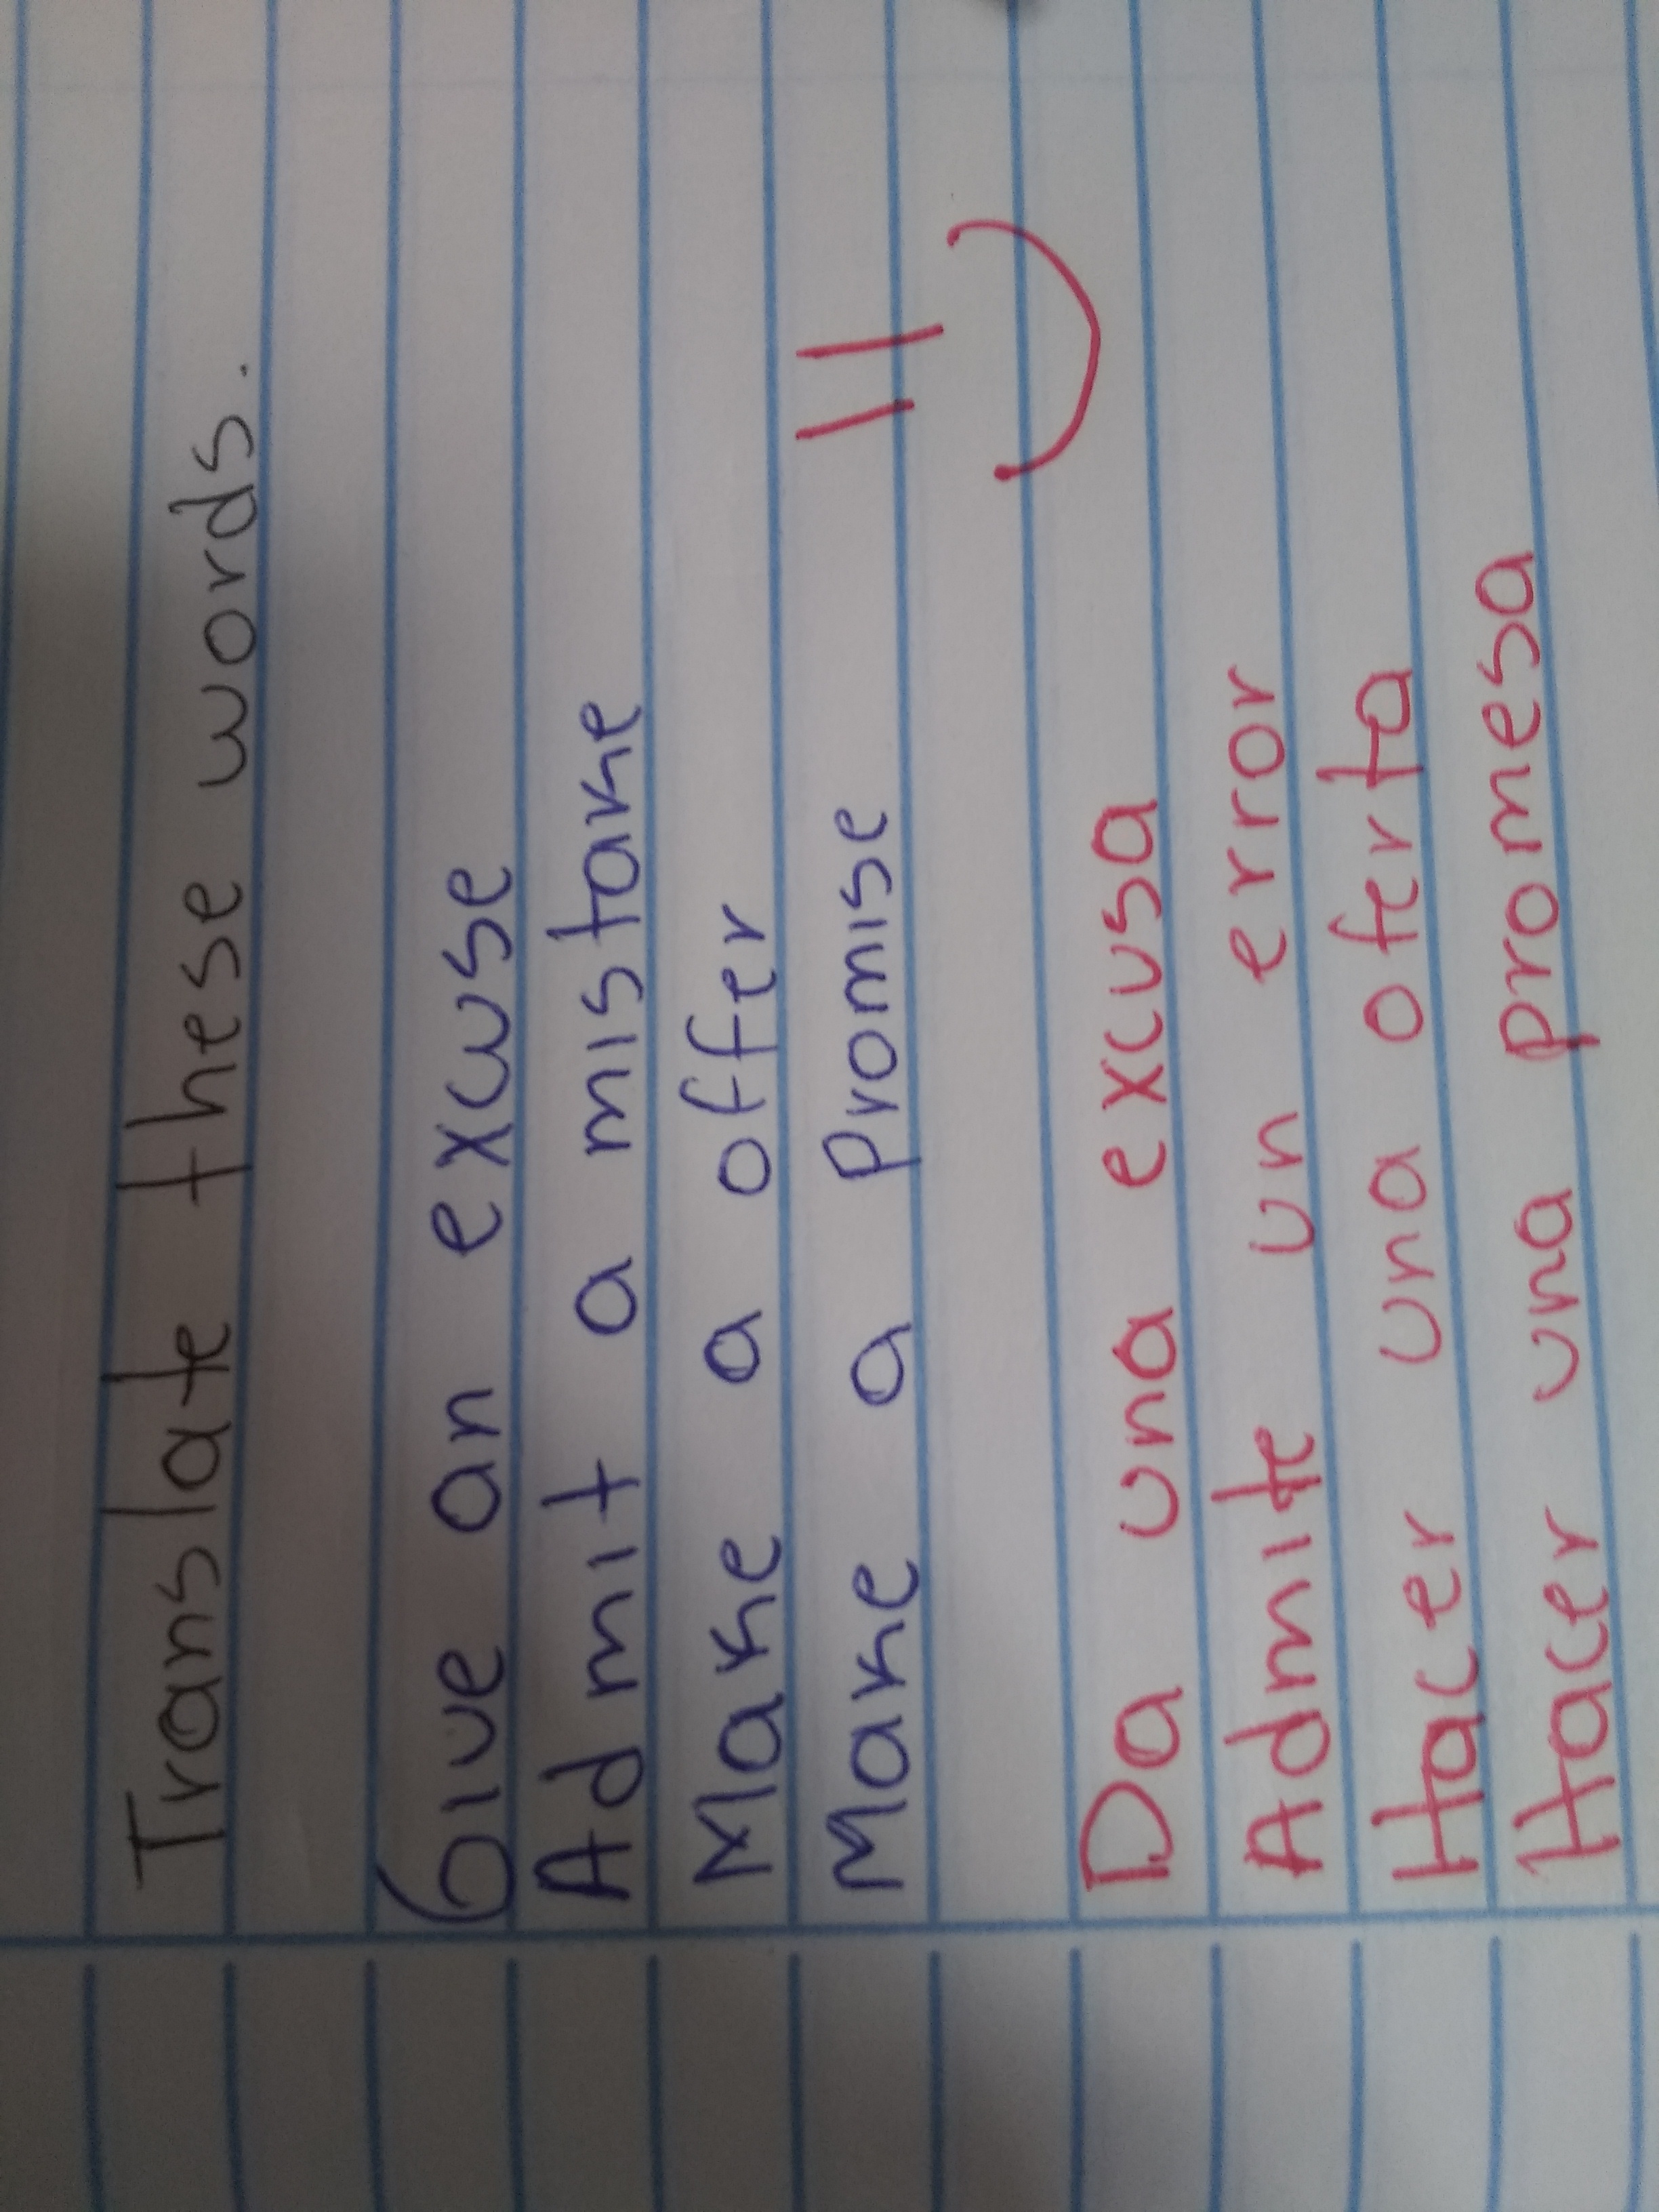 Translate these words.
Give an excuse
Admit a mistake
Make a offer
Make a promise
Da una excusa
Admite un error
Hacer una oferta
Hacer una promesa